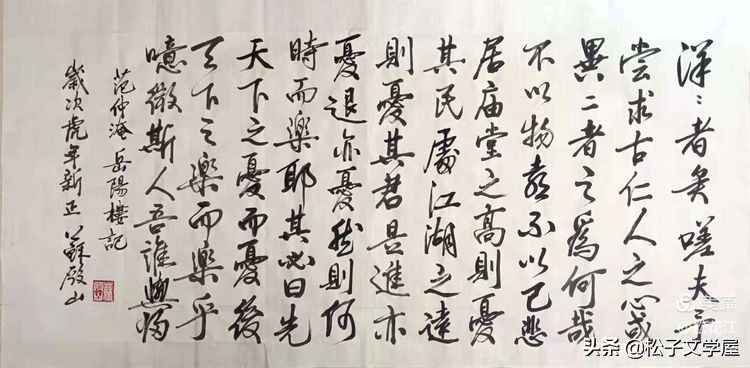 洋〻者矣嗟夫予
尝求古仁人之心或
異二者之爲何哉
不以物喜不以己悲
居庙堂之高則憂
其民處江湖之遠
則憂其君是進亦
憂退亦憂然則何
時而樂耶其必曰先
天下之憂而憂後
天下之樂而樂乎
噫微斯人吾誰與歸
范仲淹岳陽樓記
歲次虎年新正 蘇殿山
美篇
头条 @松子文学屋